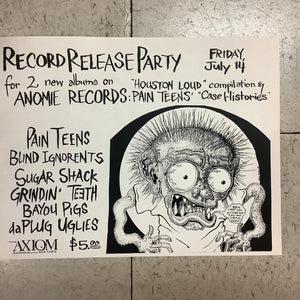 RECORD RELEASE PARTY
FRIDAY,
July 14
for 2 new albums on "HOUSTON LOUD" compilation &
ANOMIE RECORDS: PAIN TEENS' "Case Histories"
PAIN TEENS
BLIND IGNORENTS
SUGAR SHACK
GRINDIN' TEETH
BAYOU PIGS
daPLUG UGLIES
AXIOM $5.00